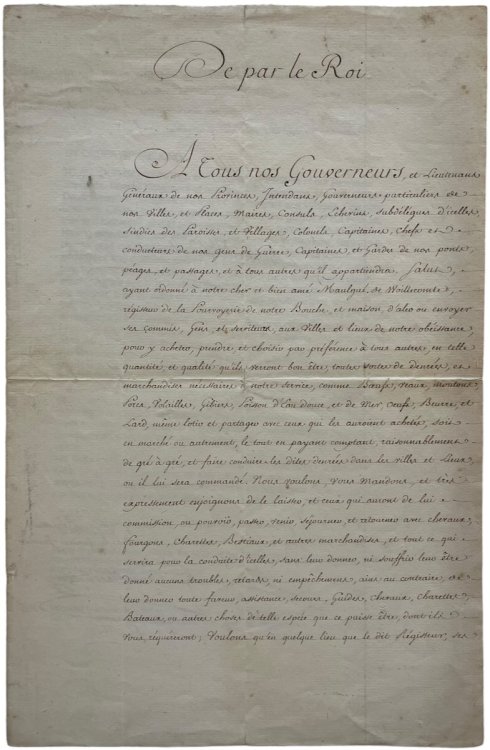 De par le Roi
A Tous nos Gouverneurs, et Lieutenans
Généraux de nos Provinces, Intendans, Gouverneurs particuliers de
nos Villes, et Places, Maires, Consuls, Echevins, subdélégues d'icelles,
Sindics des Paroisses, et Villages, Colonels, Capitaines, Chefs et
conducteurs de nos gens de Guerre, Capitaines, et Gardes de nos ponts
peages, et passages, et à tous autres qu'il appartiendra. Salut
ayant ordonné à notre cher et bien amé Maulgué de Woillecomte
régisseur de la Pourvoyerie de notre Bouche, et maison, d'aler ou envoyer
ses Commis, Gens, et serviteurs, aux Villes et lieux de notre obeissance,
pour y acheter, prendre, et choisir par préférence à tous autres, en telle
quantité, et qualité qu'ils verront bon être, toutes sortes de denrées, et
marchandises nécessaires à notre service, comme Bœufs, veaux, moutons
Porcs, Volailles, Gibiers, Poisson d'Eau douce, et de Mer, œufs, Beurre, et
Lard, même lotir et partager avec ceux qui les auront achetés, soit
en marché ou autrement, le tout en payant comptant, raisonnablement
de gré à gré, et faire conduire les dites denrées dans les villes et Lieux,
où il lui sera commandé. Nous voulons, vous Mandons, et très
expressement enjoignons de le laisser, et ceux qui auront de lui
commission, ou pouvoir, passer, venir, séjourner, et retourner avec chevaux,
fourgons, Charettes, Bestiaux, et autres marchandises, et tout ce qui
servira pour la conduite d'icelles, sans leur donner, ni souffrir leur être
donné aucuns troubles, retards, ni empêchemens, ains au contraire, de
leur donner toute faveur, assistance, secours, Guides, Chevaux, Charettes,
Bateaux, ou autres choses de telle espece que ce puisse être, dont ils
vous requéreront; Voulons qu'en quelque lieu que le dit Régisseur, ses